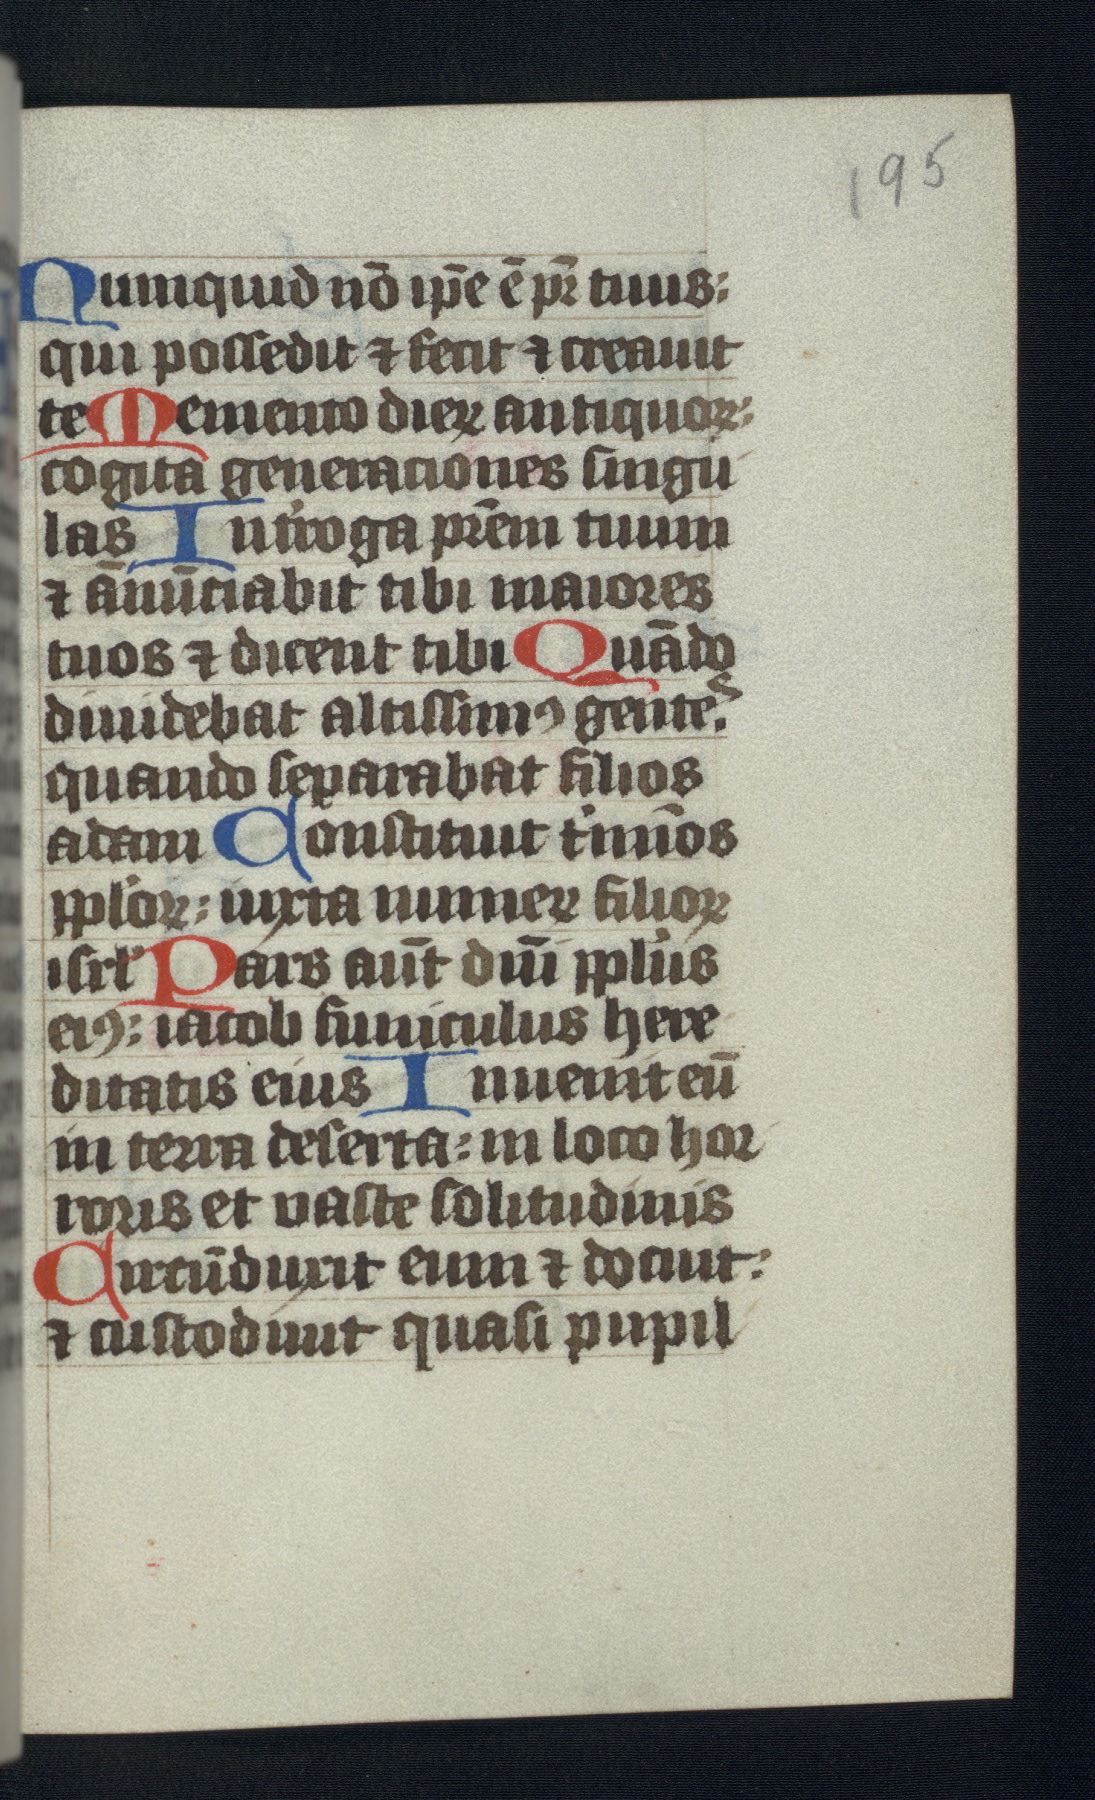 195
Numquid nō ip̄e ē pr̄ tuus:
qui possedit ⁊ fecit ⁊ creauit
te Memento dieꝝ antiquoꝝ:
cogita generaciones singu
las Int͛roga pr̄em tuum
⁊ ānūciabit tibi maiores
tuos ⁊ dicent tibi Quādo
diuidebat altissimꝰ gentes.
quando separabat filios
adam Constituit t͛mīos
ppl̓oꝝ: iuxta numeꝝ filioꝝ
isrl̓ Pars aūt dn̄i ppl̓us
eiꝰ: iacob funiculus here
ditatis eius Inuenit eū
in terra deserta: in loco hor
roris et uaste solitudinis
Circūduxit eum ⁊ docuit:
⁊ custodiuit quasi pupil